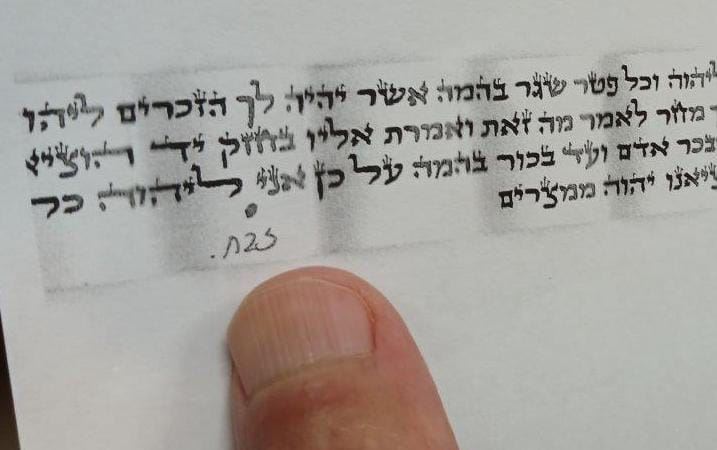 ליהוה וכל פטר שגר בהמה אשר יהיה לך הזכרים ליהו
מחר לאמר מה זאת ואמרת אליו בחזק יד הוציא
בכר אדם ועד בכור בהמה על כן אני ליהוה כל
ציאנו יהוה ממצרים
זבח.